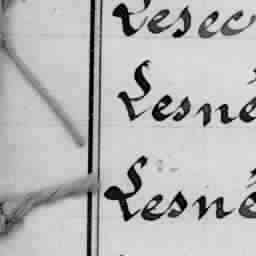 Lesec
Lesné
Lesné